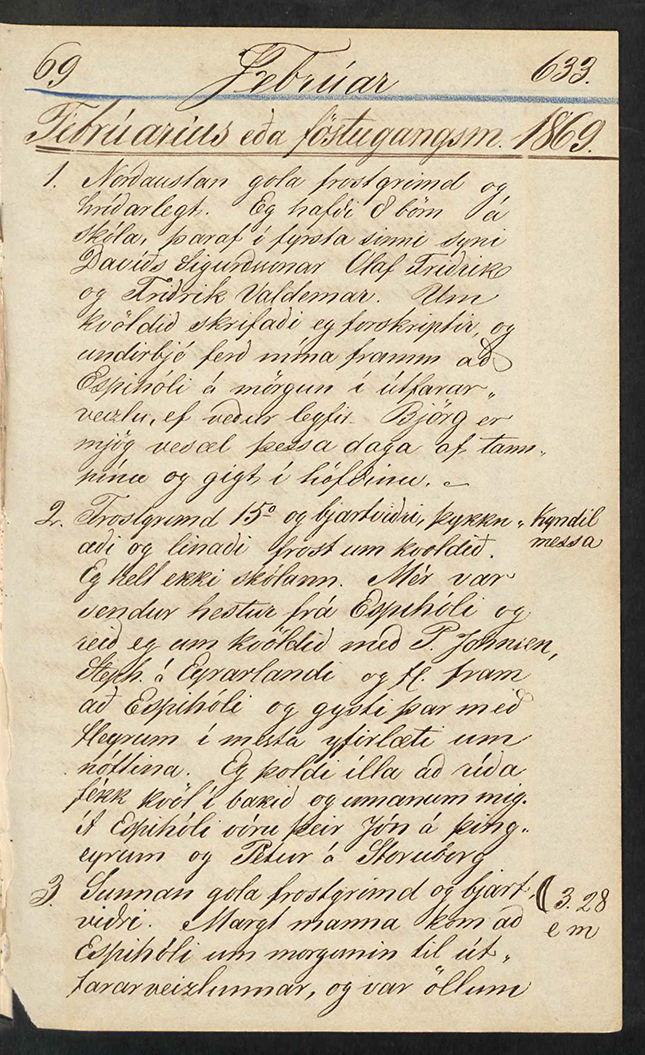 69 Febrúar 633.
Febrúaríus eða föstugangsm. 1869.
1. Norðaustan gola frostgrimd og
hríðarlegt. Eg hafði 8 börn á
skóla, þaraf í fyrsta sinni syni
Davíðs Sigurðssonar Olaf Friðrik
og Friðrik Valdemar. Um
kvöldið skrifaði eg forskriptir, og
undirbjó ferð mína framm að
Espihóli á mörgun í útfarar„
veizlu, ef veður leyfir. Björg er
mjög vesæl þessa daga af tann„
pínu og gigt í höfðinu.
2. Frostgrimd 15° og bjartviðri, þykkn„ Kyndil
aði og linaði frost um kvoldið. messa
Eg helt ekki skólann. Mér var
sendur hestur frá Espihóli og
reið eg um kvöldið með P. Johnsen,
Steph. á Eyrarlandi og fl. fram
að Espihóli og gysti þar með
fleyrum í mesta yfirlæti um
nóttina. Eg þoldi illa að ríða
fékk kvöl í bakið og umanum mig.
Á Espihóli vóru þeir Jón á Þing„
eyrum og Petur á Storuborg
3. Sunnan gola frostgrimd og bjart„ ( 3.28
viðri. Margt manna kom að e m
Espihóli um morgunin til út„
fararveizlunnar, og var öllum